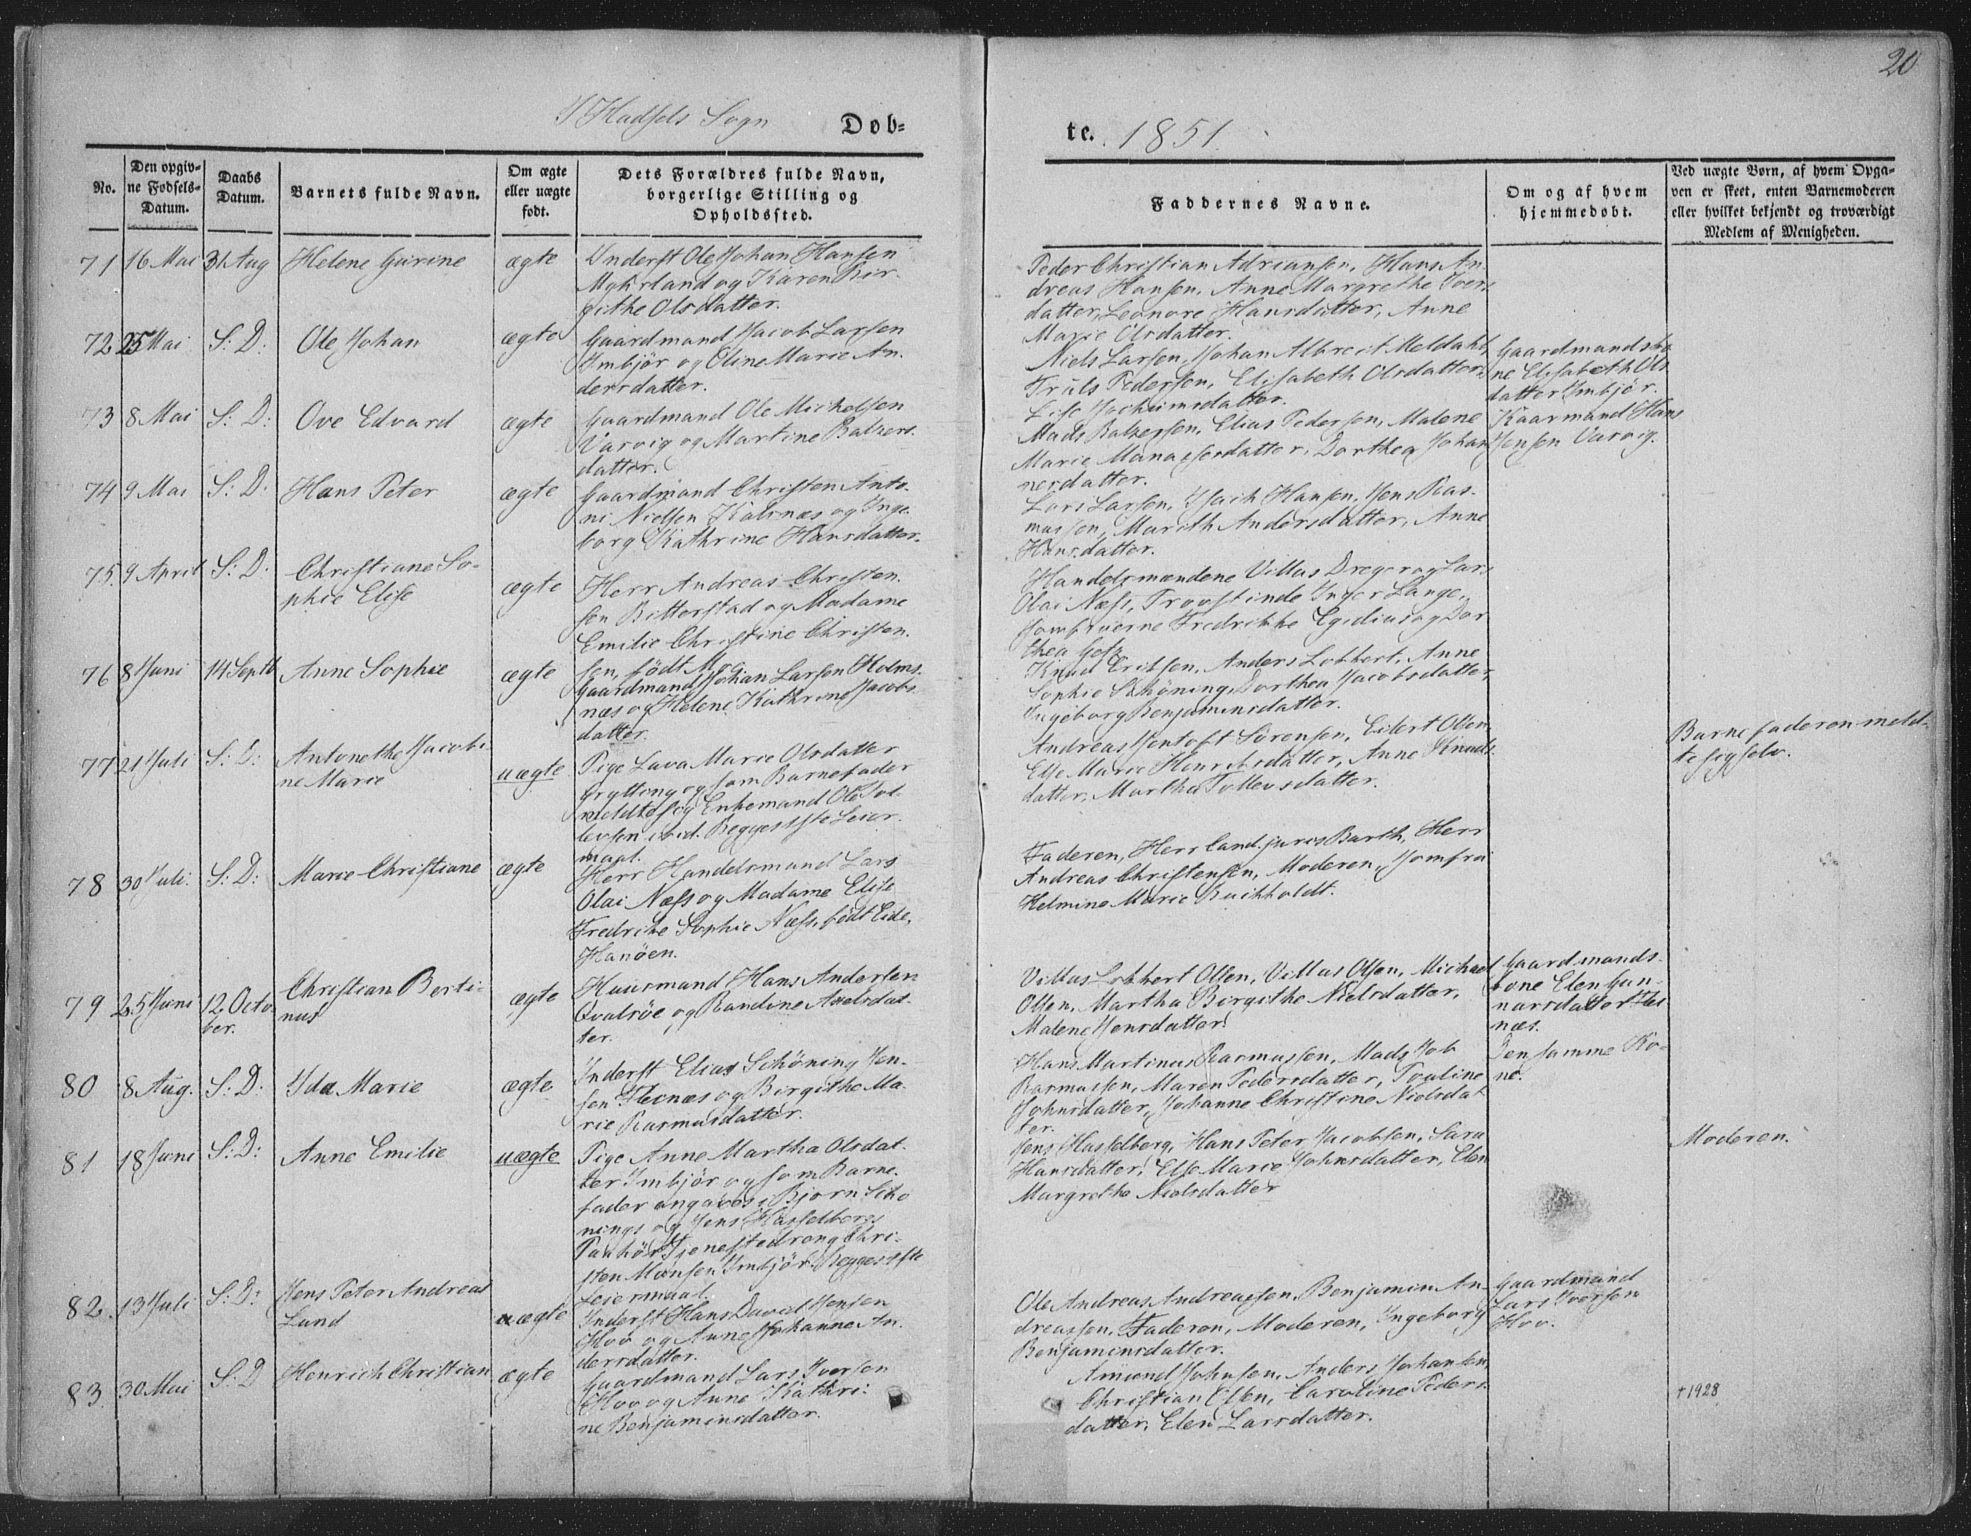 20
I Hadsels Sogn Dob=
te. 1851.
No.
Den opgiv=
ne Fodsels=
Datum.
Daabs
Datum.
Barnets fulde Navn.
Om ægte
eller uægte
født.
Dets Forældres fulde Navn,
borgerlige Stilling og
Opholdssted.
Faddernes Navne.
Om og af hvem
hjemmedobt.
Ved uægte Born, af hvem Opga=
ven er skeet, enten Barnemoderen
eller hvilket bekjendt og troværdigt
Medlem af Menigheden.
71 16 Mai 31 Aug Helene Gurine ægte Inderst Ole Johan Hansen
Mykrland og Karen Bir-
githe Olsdatter.
Peder Christian Adriansen, Hans An-
dreas Hansen, Anne Margrethe Ivers
datter, Leonore Hansdatter, Anne
Marie Olsdatter.
72 25 Mai S: D: Ole Johan ægte Gaardmand Jacob Larsen
Imbjør og Oline Marie An-
dersdatter.
Niels Larsen, Johan Albreit Meldahl,
Truls Pedersen, Elisabeth Olsdatter,
Lise Jochumsdatter.
Gaardmandsko
ne Elisabeth Ols
datter Imbjør.
73 8 Mai S: D: Ove Edvard ægte Gaardmand Ole Michelsen
Varvig og Martine Balzers-
datter.
Mads Balzersen, Elias Pedersen, Malene
Marie Manassesdatter, Dorthea Johan
nesdatter.
Kaarmand Hans
Jensen Varvig.
74 9 Mai S: D: Hans Peter ægte Gaardmand Christen Anto-
ni Nielsen Kalsnæs og Inge-
borg Kathrine Hansdatter.
Lars Larsen, Isach Hansen, Jens Ras-
mussen, Marith Andersdatter, Anne
Hansdatter.
75. 9 April S: D: Christiane So-
phie Elise ægte Herr Andreas Christen-
sen Bitterstad og Madame
Emilie Christine Christen-
sen, født Moe
Handelsmændene Villas Dreyer og Lars
Olai Næss, Provstinde Inger Lange,
Jomfruerne Fredrikke Egidius og Dor
thea
76 8 Juni 14 Septb Anne Sophie ægte Gaardmand Johan Larsen Holms-
næs og Helene Kathrine Jacobs-
datter.
Knud Eritsen, Anders Lobbert, Anne
Sophie Schøning, Dorthea Jacobsdatter,
Ingeborg Benjaminsdatter.
77 21 Juli S: D: Antonethe Jacobi-
ne Marie uægte Pige Lava Marie Olsdatter
Grytting og som Barnefader
meldte sig Enkemand Ole Tol-
levsen ibid. Begges 1ste Leier-
maal.
Andreas Hentoft Sørensen, Eilert Olsen,
Else Marie Henriksdatter, Anne Knuds
datter, Martha Tollevsdatter.
Barnefaderen meld-
te sig selv.
78 30 Juli. S: D: Marie Christiane ægte Herr Handelsmand Lars
Olai Næss og Madame Elise
Fredrike Sophie Næss, født Eide,
Hanöen.
Faderen, Herr Cand. juris Barth, Herr
Andreas Christensen, Moderen, Jomfru
Helmine Marie Buchholdt.
79 25 Juni 12 Octo-
ber. Christian Berti-
nus ægte Huusmand Hans Andersen
Qvalröe og Randine Axelsdat-
ter.
Villas Lobbert Olsen, Villas Olsen, Michael
Olsen, Martha Birgithe Nielsdatter,
Malene Jensdatter.
Gaardmands-
kone Elen Gun-
narsdatter Fles
næs.
80 8 Aug. S: D: Ida Marie ægte Inderst Elias Schöning Jen-
sen Flesnæs og Birgithe Ma-
rie Rasmusdatter.
Hans Martinus Rasmussen, Mads Job
Rasmussen, Maren Pedersdatter, Pauline
Johnsdatter, Johanne Christine Nielsdat
ter.
Den samme Ko-
ne.
81 18 Juni S: D: Anne Emilie uægte Pige Anne Martha Olsdat-
ter Imbjør og som Barne-
fader angaves Bjorn Schø
nings og Jens Hasselbergs
Tjenestedreng Chri-
sten Monsen Imbjör. Begges 1ste
Leiermaal.
Jens Hasselberg, Hans Peter Jacobsen, Sara
Hansdatter, Else Marie Johnsdatter, Elen
Margrethe Nielsdatter
Moderen.
82. 13 Juli S: D: Jens Peter Andreas
Lund uægte Inderst Hans David Jensen
Hov og Anne Johanne An-
dersdatter.
Ole Andreas Andreassen, Benjamin An-
dreassen, Faderen, Moderen, Ingeborg
Benjaminsdatter.
Gaardmand
Lars Iversen
Hov.
83. 30 Mai S: D Henrich Christian ægte Gaardmand Lars Iversen
Hov og Anne Kathri-
ne Benjaminsdatter.
Amund Johnsen, Anders Johansen,
Christian Olsen, Caroline Peders-
datter, Elen Larsdatter.
† 1928